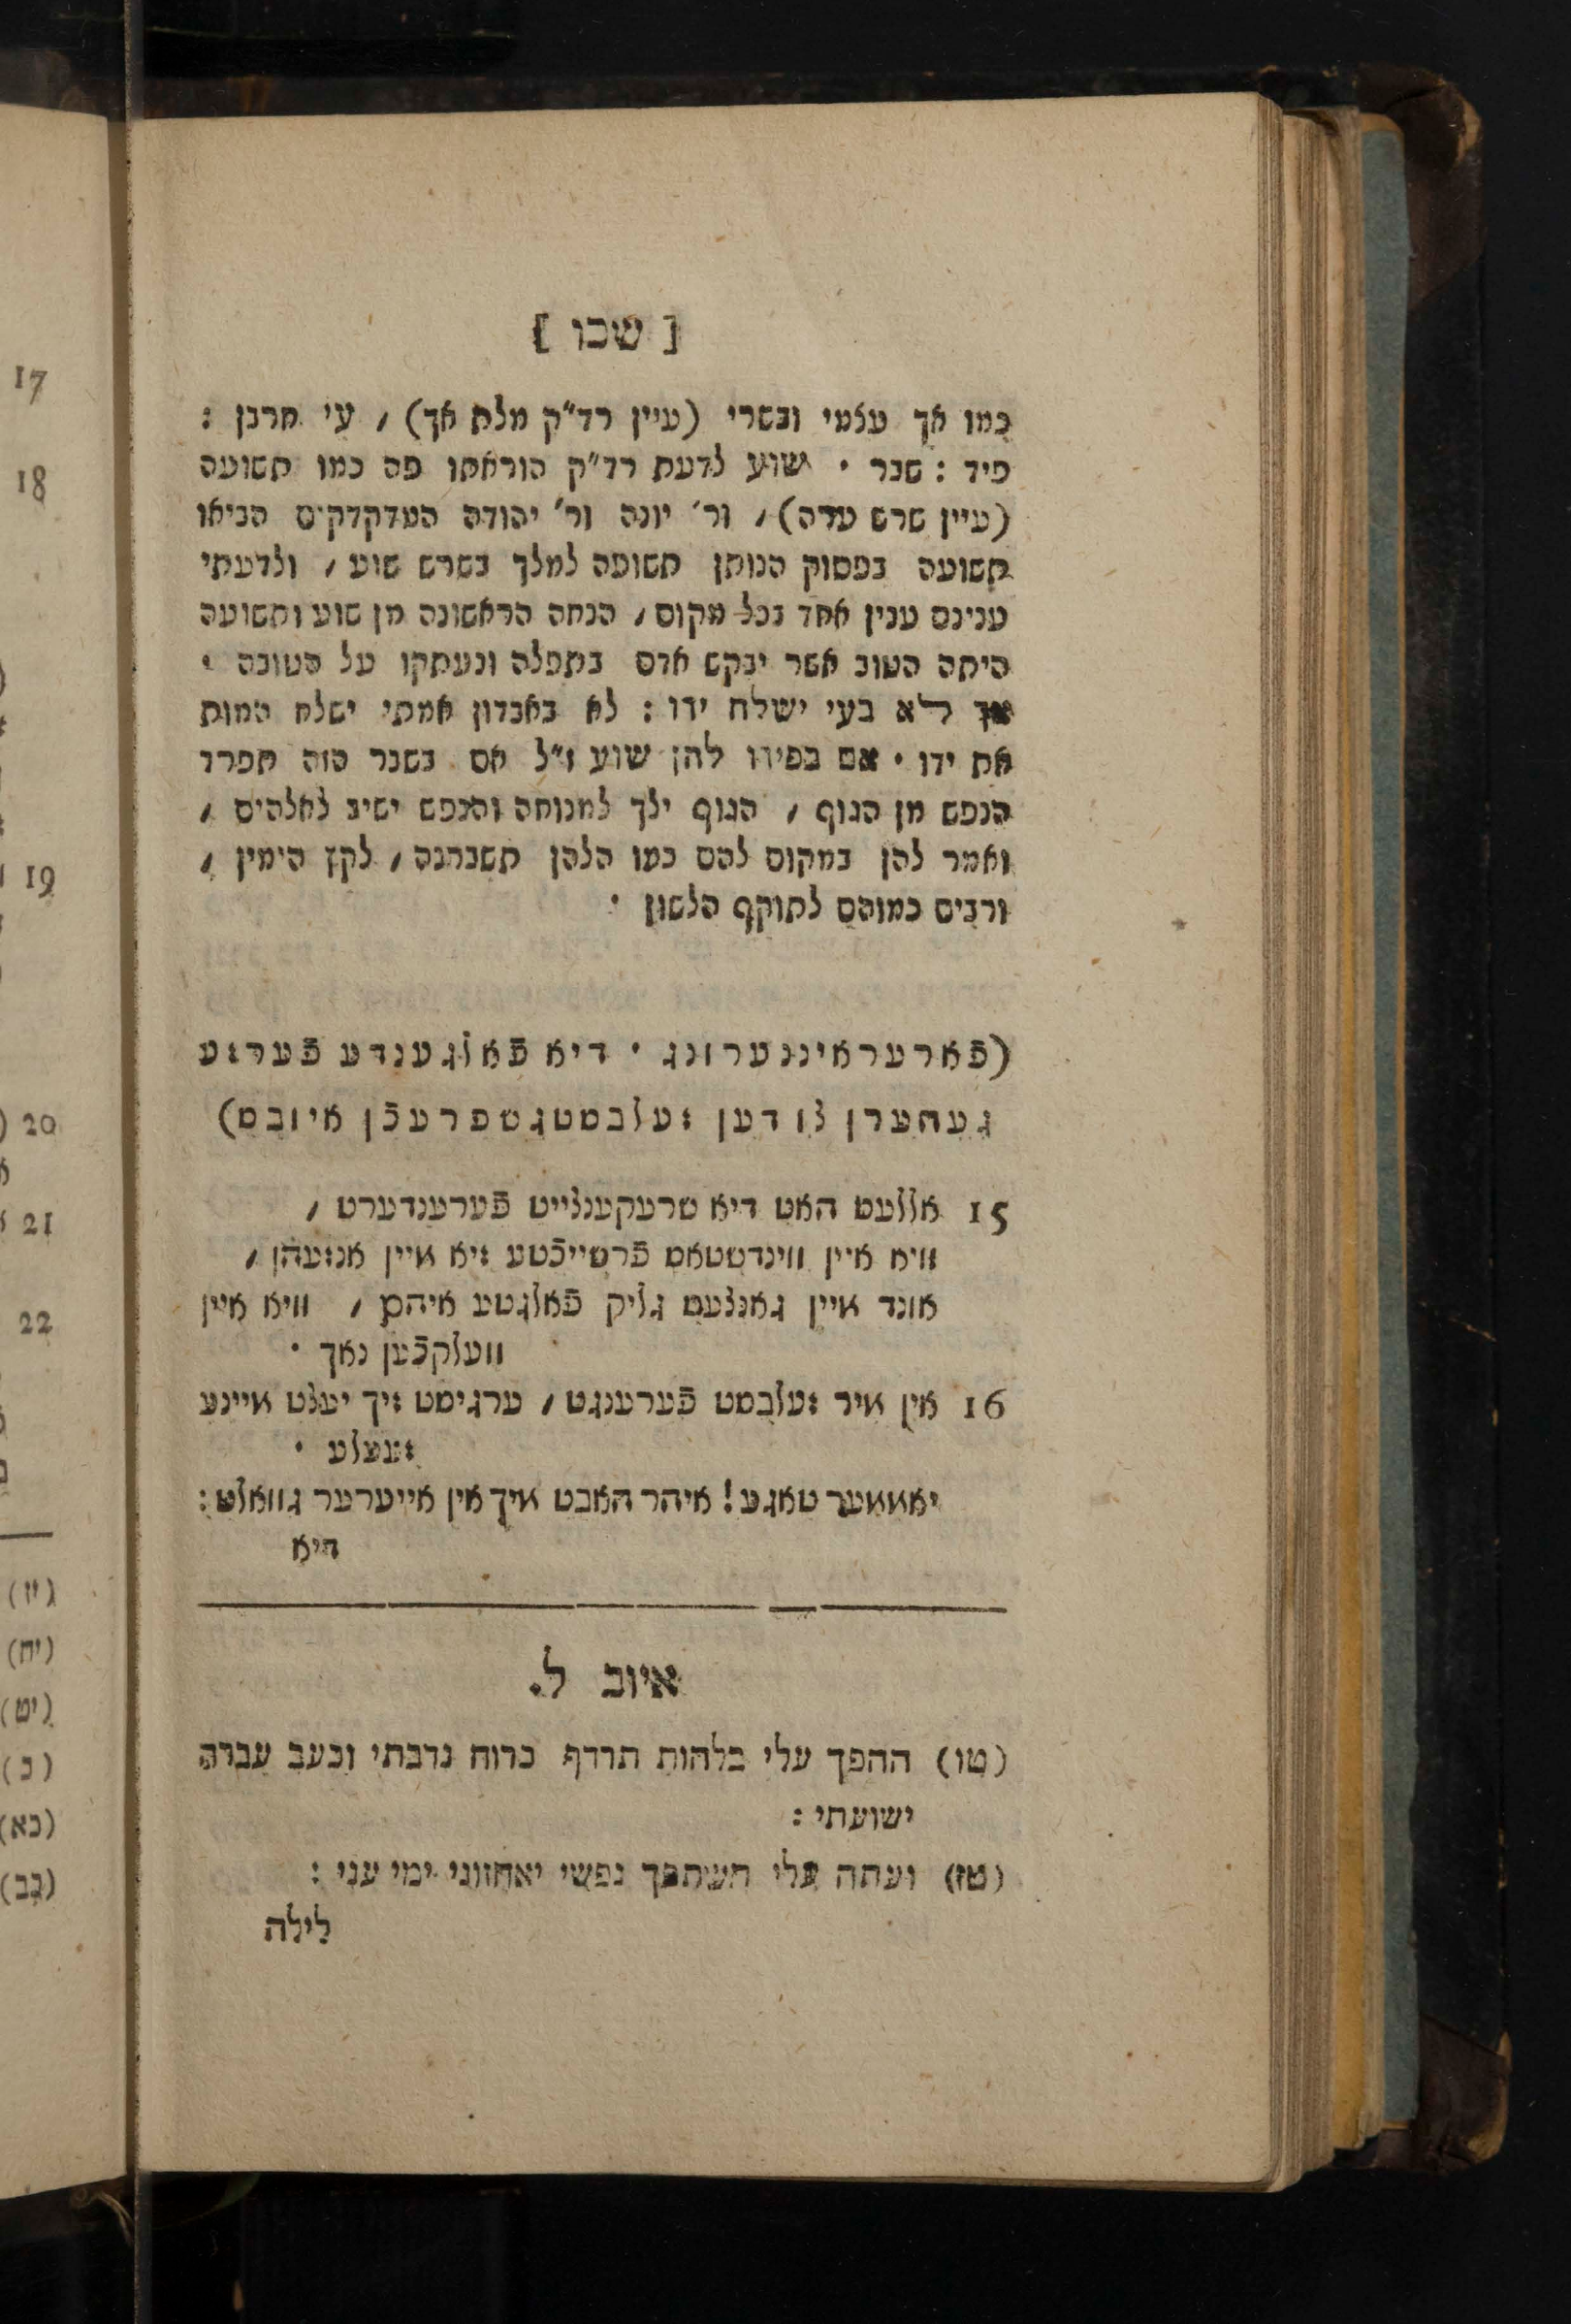 [ שכו ]
כמו אך עצמי ובשרי (עיין רד״ק מלת אך) , עי חרבן :
פיד : שבר · שוע לדעת רד״ק הוראתו פה כמו תשועה
(עיין שרש עדה) , ור׳ יונה ור׳ יהודה המדקדקים הביאו
תשועה בפסוק הנותן תשועה למלך בשרש שוע , ולדעתי
ענינם ענין אחד בכל מקום , הנחה הראשונה מן שוע ותשועה
היתה הטוב אשר יבקש אדם בתפלה ונעתקו על הטובה ·
אך לא בעי ישלח יד‏ו : לא באבדון אמתי ישלח המות
את ידו · אם בפידו להן שוע ז״ל אם בשבר הזה תפרד
הנפש מן הגוף , הגוף ילך למנוחה והנפש ישיב לאלהים ,
ואמר להן במקום להם כמו הלהן תשברנה , לקץ הימין ,
ורבים כמוהם לתוקף הלשון ·
(פֿאָרעראיננערונג · דיא פֿאלגענדע פֿערזע
געהערן צו דען זעלבסטגשפרעכֿן איובס)
15 אללעס האט דיא שרעקענצייט פֿערענדערט ,
וויא איין ווינדשטאס פֿרשייכֿטע זיא מיין אנזעהן ,
אונד מיין גאנצעס גליק פֿאלגטע איהם , וויא איין
וועלקכֿען נאך ·
16 אין מיר זעלבסט פֿערענגט , ערגיסט זיך יעצט מיינע
זעעלע ·
יאממער טאגע ! איהר האבט מיך אין אייערער גוואלט :
דיא
איוב ל.
(טו) ההפך עלי בלהות תרדף כרוח נדבתי וכעב עברה
ישועתי :
(טז) ועתה עלי תשתפך נפשי יאחזוני ימי עני :
לילה
17
18
19
20
21
22
(יז)
(יח)
(יט)
(כ)
(כא)
(כב)